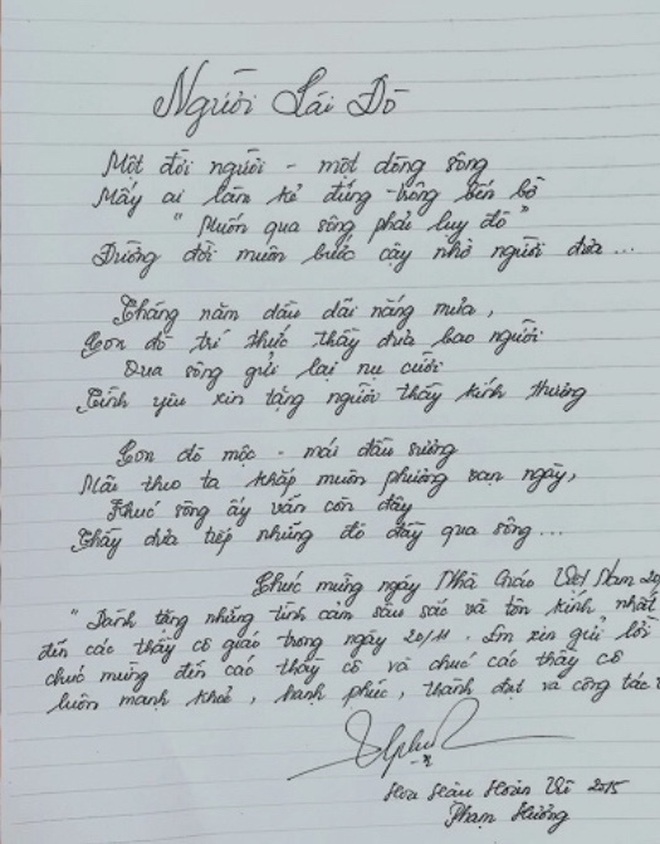 Người Lái Đò
Một đời người - một dòng sông
Mấy ai làm kẻ đứng trông bến bờ
"Muốn qua sông phải luỵ đò"
Đường đời muôn bước cậy nhờ người đưa...
Tháng năm dầu dãi nắng mưa,
Con đò trí thức thầy đưa bao người
Qua sông gửi lại nụ cười
Tình yêu xin tặng người thầy kính thương
Con đò mộc - mái đầu sương
Mãi theo ta khắp muôn phương vạn ngày,
Khúc sông ấy vẫn còn đây
Thầy đưa tiếp những đò đầy qua sông...
Chúc mừng ngày Nhà Giáo Việt Nam 20/
"Dành tặng những tình cảm sâu sắc và tôn kính nhất
đến các thầy cô giáo trong ngày 20/11. Em xin gửi lời
chúc mừng đến các thầy cô và chúc các thầy cô
luôn mạnh khoẻ, hạnh phúc, thành đạt và công tác
Hoa Hậu Hoàn Vũ 2015
Phạm Hương